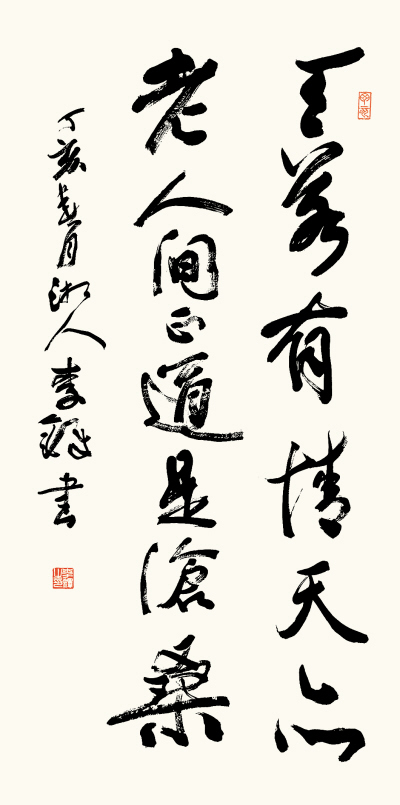 天若有情天亦
老人间正道是滄桑
丁亥春月湘人李 書